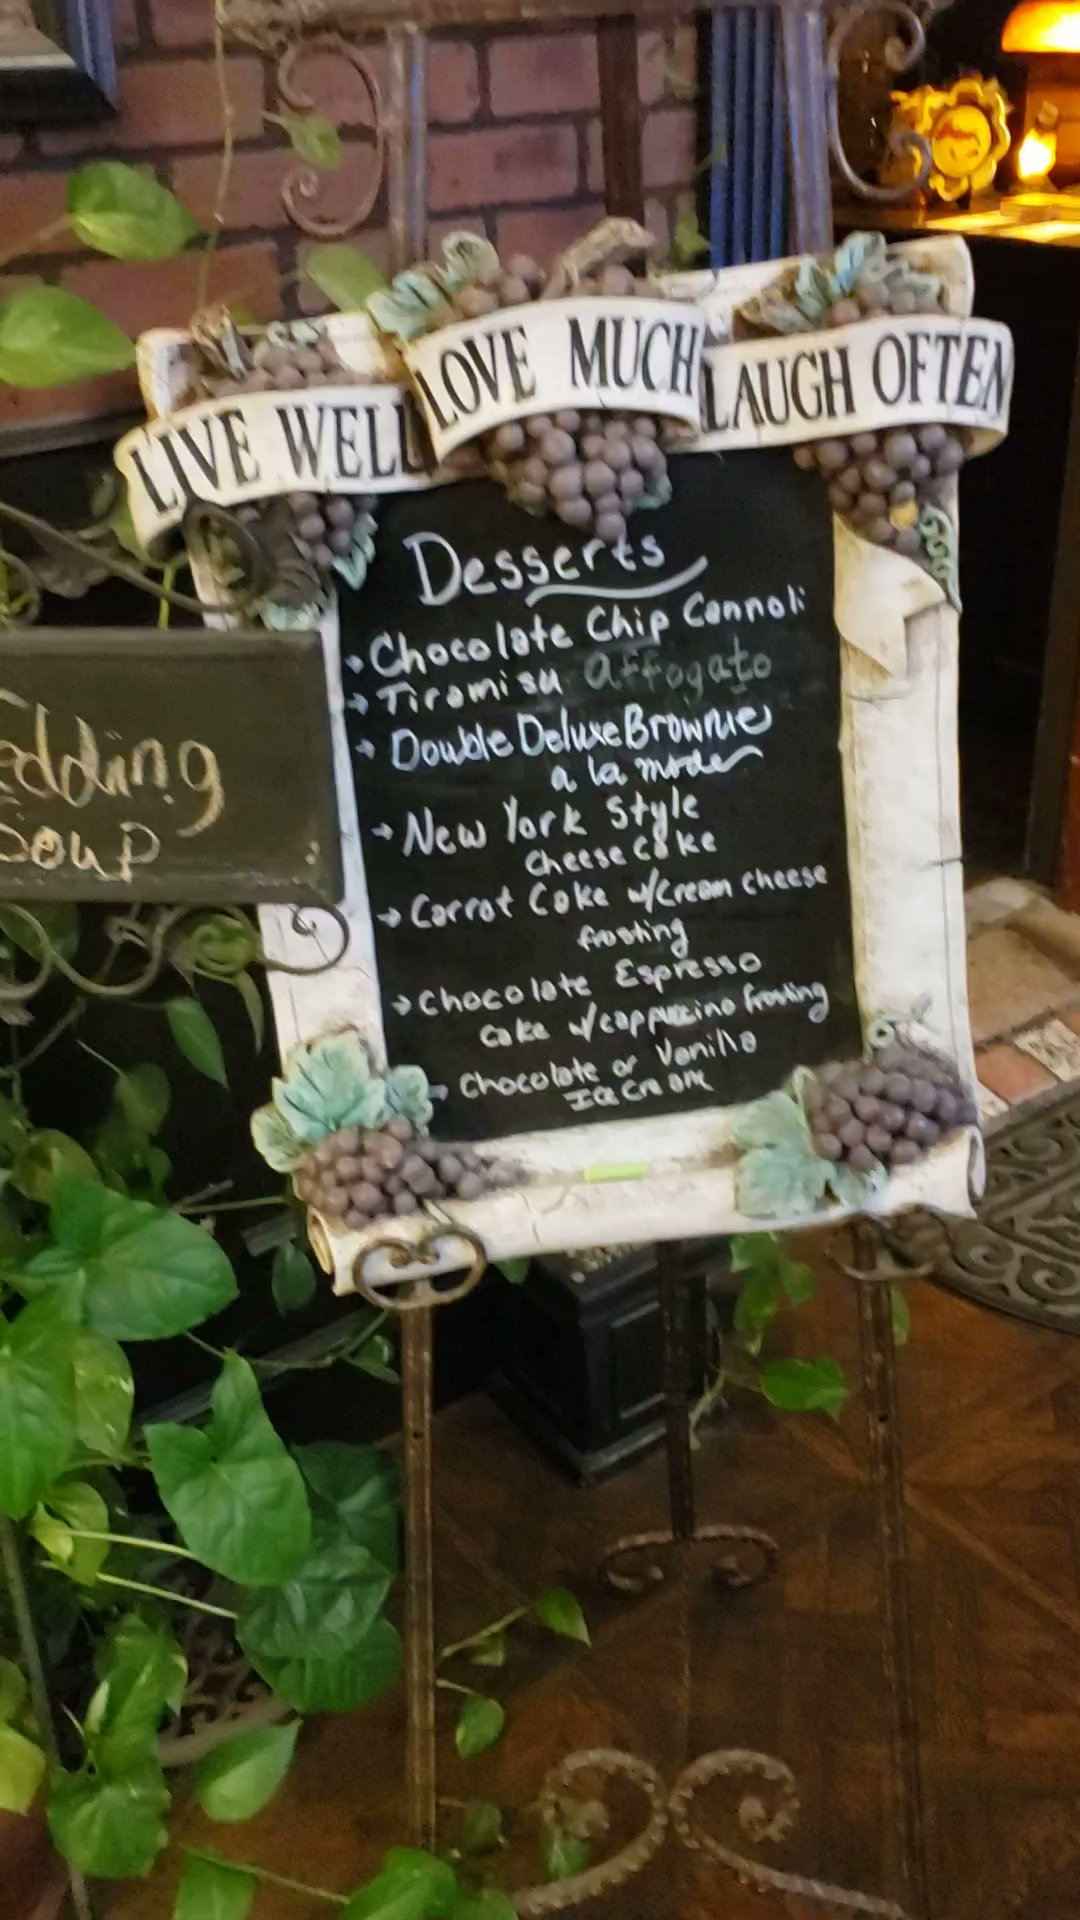 LIVE WELL
LOVE MUCH
LAUGH OFTEN
Desserts
→ Chocolate Chip Cannoli
→ Tiramisu affogato
→ Double Deluxe Brownie
a la mode
→ New York Style
Cheese Cake
→ Carrot Cake w/Cream cheese
frosting
→ Chocolate Espresso
Cake w/cappuccino frosting
→ Chocolate or Vanilla
Ice Cream
edding
Soup